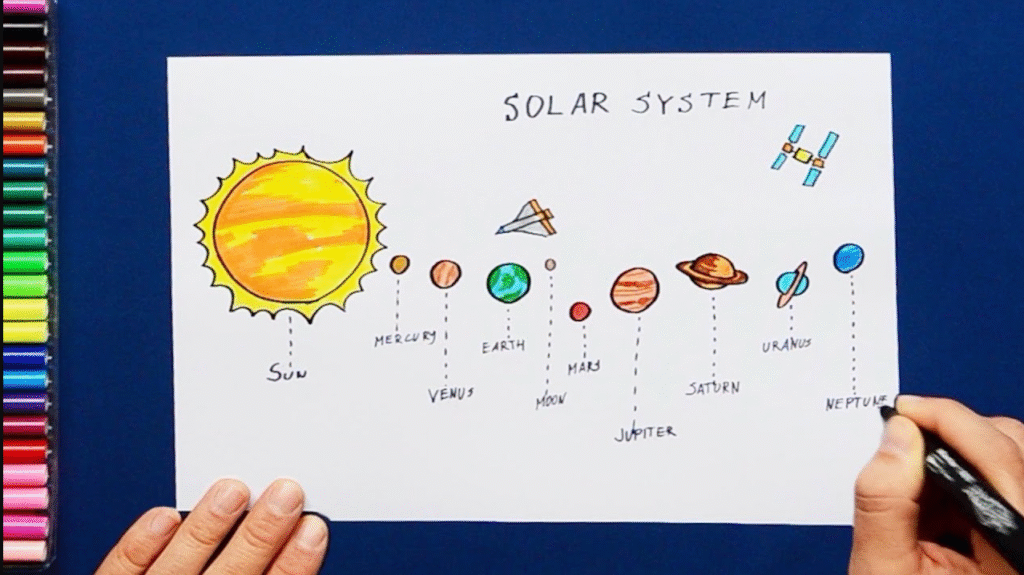 SOLAR SYSTEM
SUN
MERCURY
VENUS
EARTH
MOON
MARS
JUPITER
SATURN
URANUS
NEPTUNE